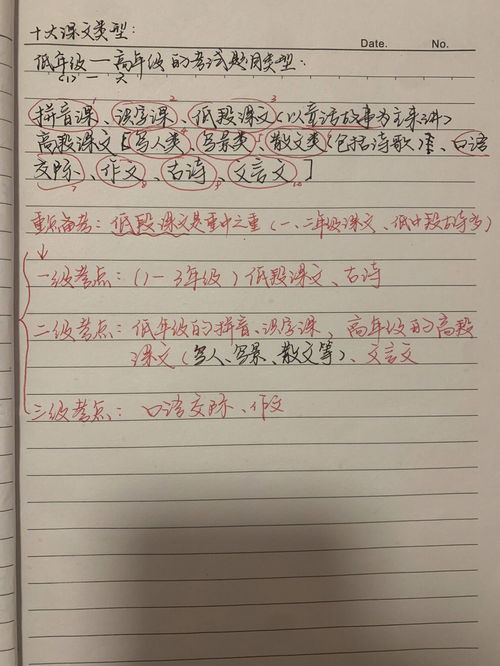 十大课文类型:
Date. No.
低年级一高年级的考试题目类型:
(1) 一 六
拼音课、识字课、低段课文(以童话故事为主来讲)
1 2 3
高段课文[写人类、写景类、散文类(包括诗歌)、口语
4 5 6
交际、作文、古诗、文言文]
7 8 9 10
重点备考:低段课文是重中之重(一、二年级课文、低中段古诗多)
一级考点:(1-3年级)低段课文、古诗
二级考点:低年级的拼音、识字课,高年级的高段
课文(写人、写景、散文等)、文言文
三级考点:口语交际、作文